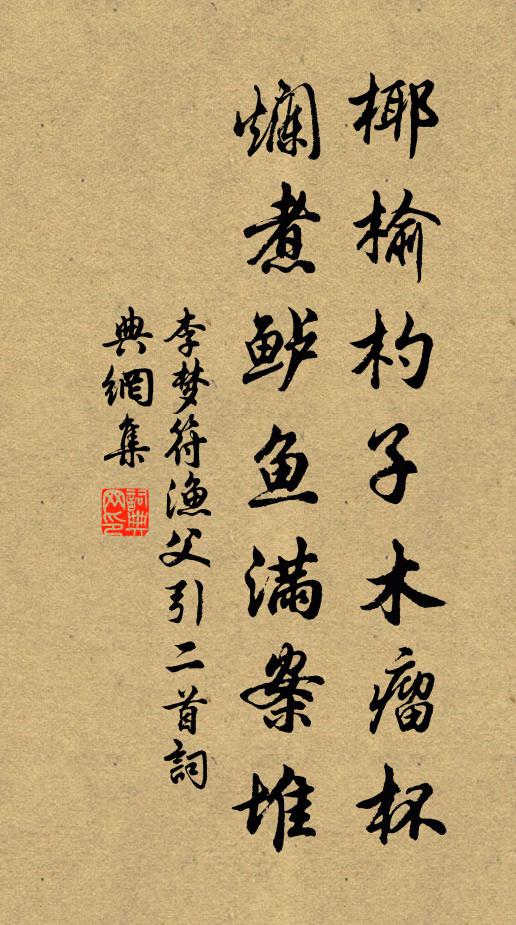 椰榆杓子木瘤杯
爛煮鲈鱼满案堆
李梦符渔父引二首詞
典網集
詞典网印